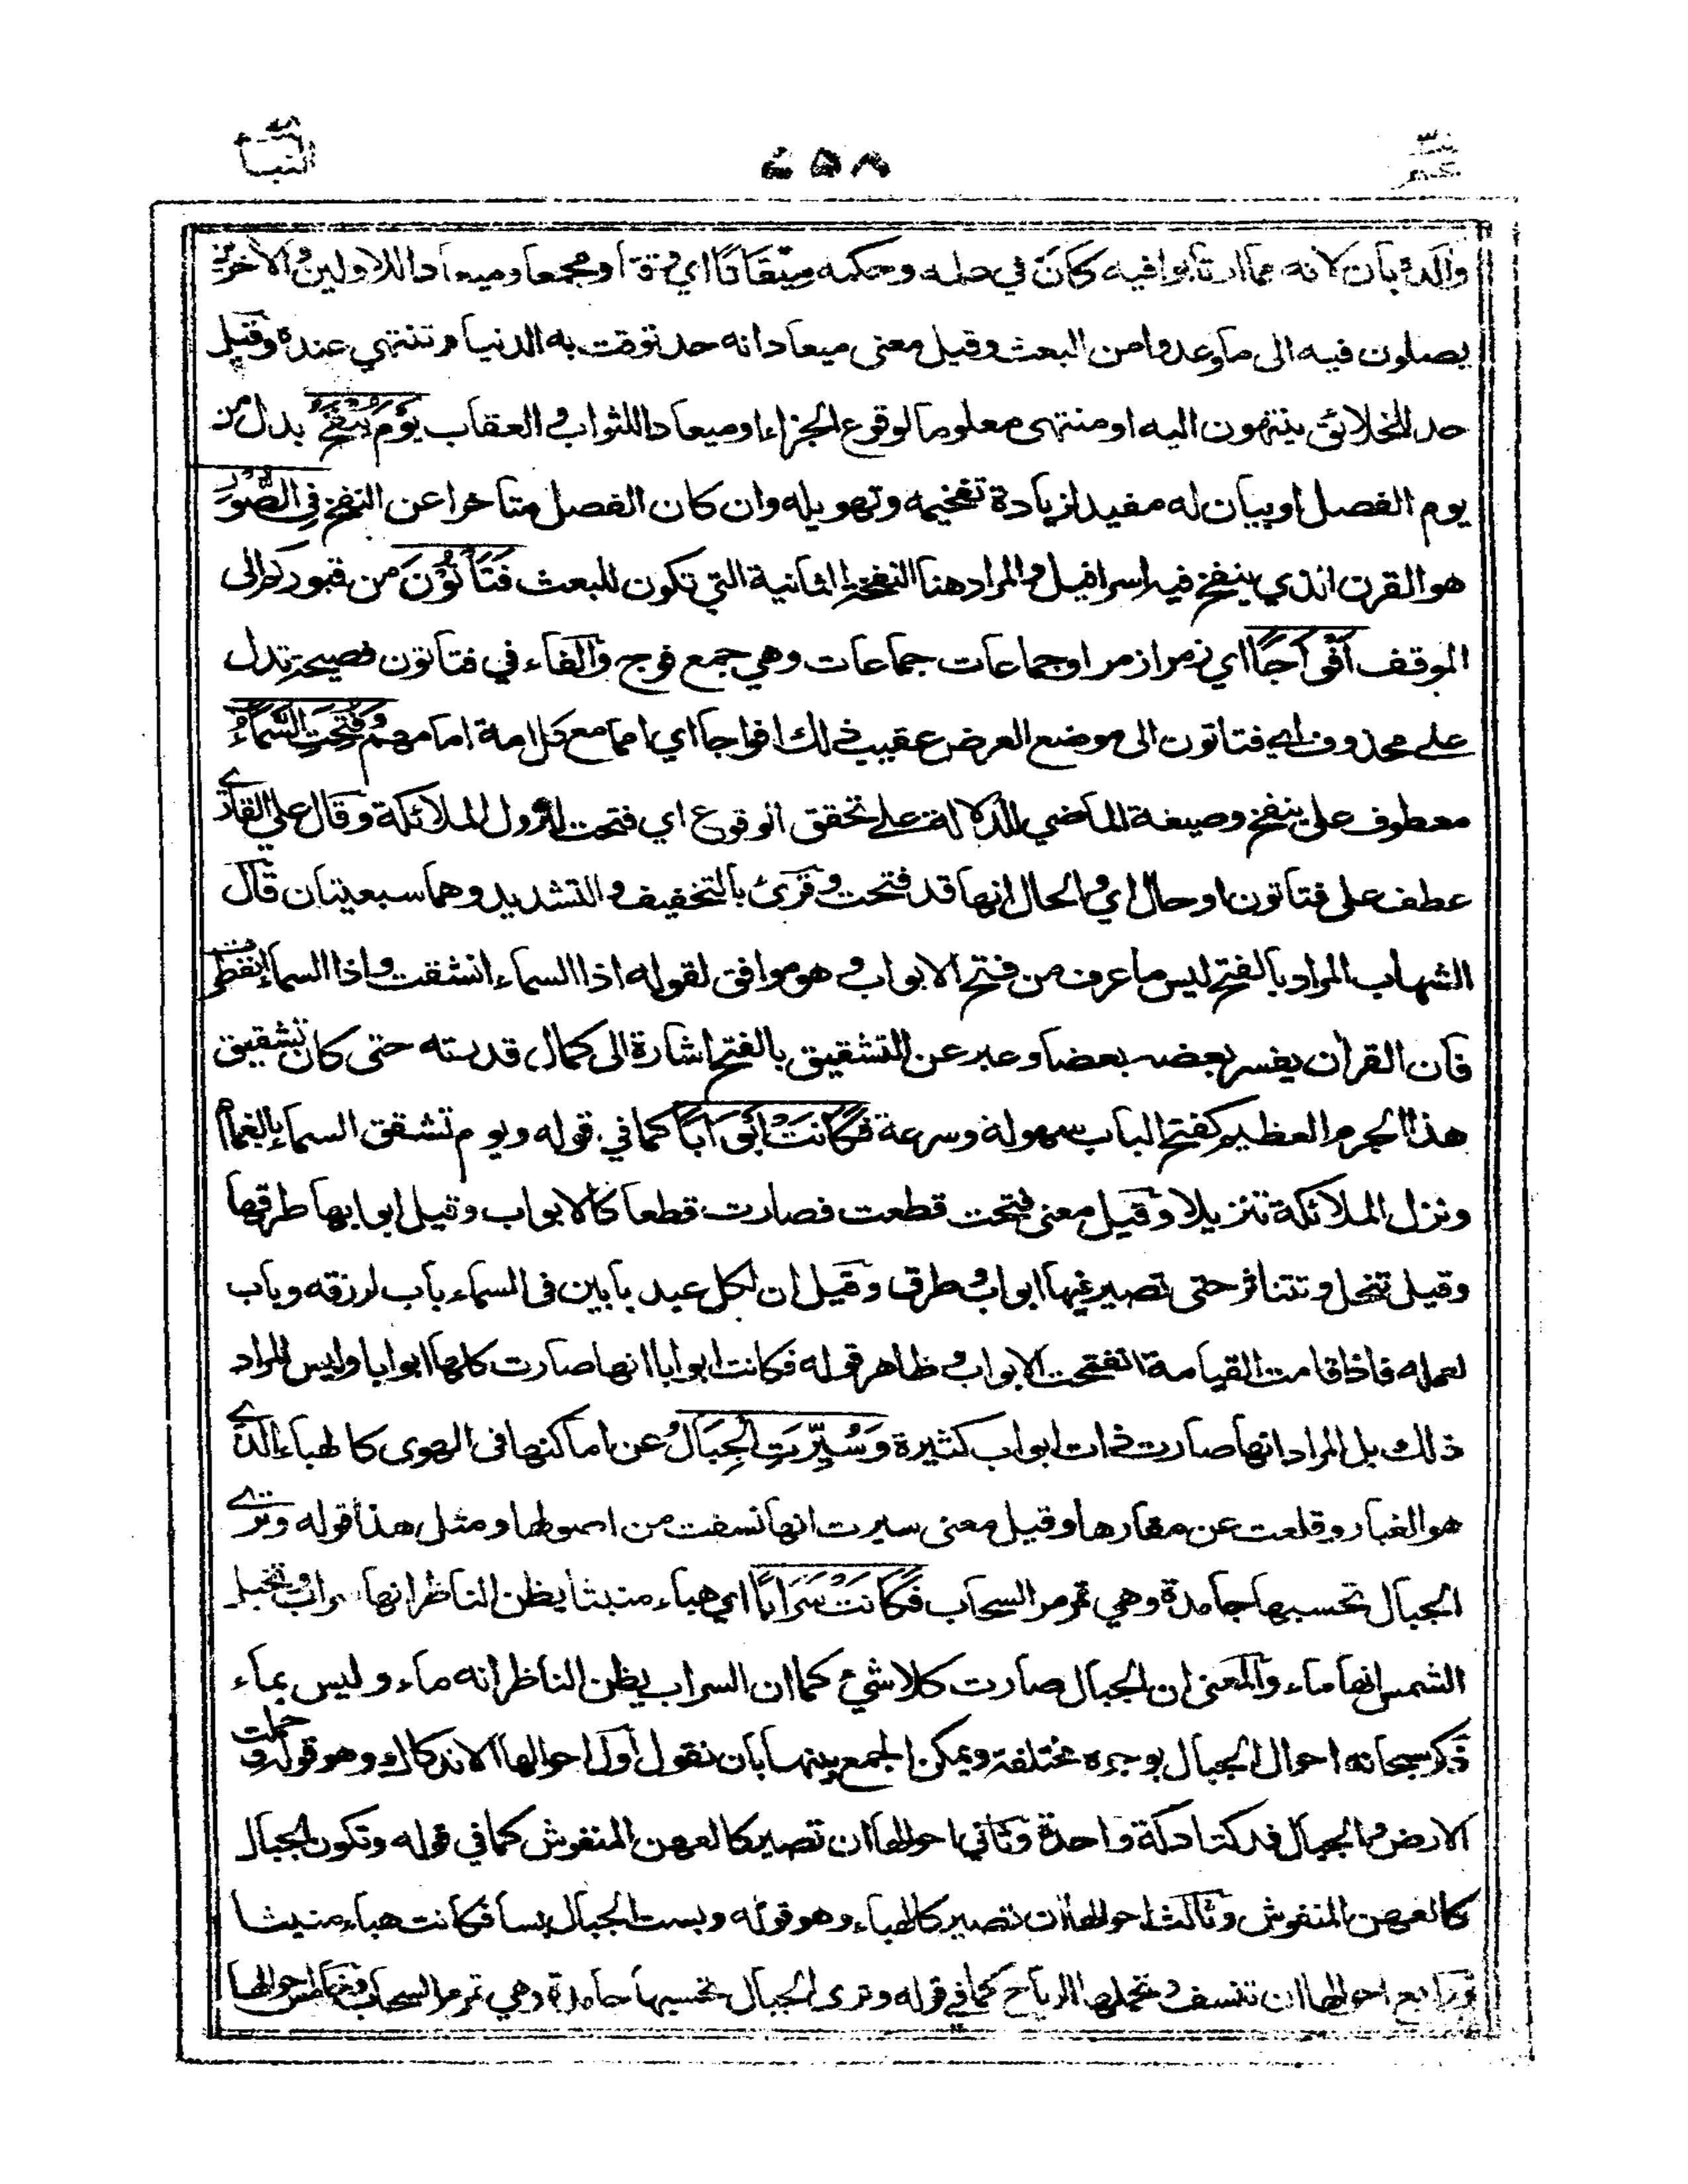 عم
٤٥٨
النبأ
والد بان لانه مما ارتابوا فيه كَانَ في علمه وحكمه مِيْقَاتًا اي وقتا ومجمعا وميعادا للاولين والآخرين
يصلون فيه الى ما وعدوا من البعث وقيل معنى ميعادا انه حد توقت به الدنيا و تنتهي عنده وقيل
حد للخلائق ينتهون اليه او منتهى معلوما لوقوع الجزاء او ميعادا للثواب و العقاب يَوْمَ يُنْفَخُ بدل من
يوم الفصل او بيان له مفيد لزيادة تفخيمه وتهويله وان كان الفصل متأخرا عن النفخ فِي الصُّوْرِ
هو القرن الذي ينفخ فيه اسرافيل والمراد هنا النفخة الثانية التي تكون للبعث فَتَأْتُوْنَ من قبوركم الى
الموقف اَفْوَاجًا اي زمرا زمرا وجماعات جماعات وهي جمع فوج والفاء في فتاتون فصيحة تدل
على محذوف اي فتاتون الى موضع العرض عقيب ذلك افواجا اي امما مع كل امة امامهم وَفُتِحَتِ السَّمَاءُ
معطوف على ينفخ وصيغة الماضي للدلالة على تحقق الوقوع اي فتحت لنزول الملائكة وقال علي القاري
عطف على فتاتون او حال اي والحال انها قد فتحت وقرئ بالتخفيف والتشديد وهما سبعيتان قال
الشهاب المراد بالفتح ليس ما عرف من فتح الابواب و هو موافق لقوله اذا السماء انشقت و اذا السماء انفطرت
فان القران يفسر بعضه بعضا وعبر عن التشقيق بالفتح اشارة الى كمال قدرته حتى كان تشقيق
هذا الجرم العظيم كفتح الباب سهولة وسرعة فَكَانَتْ اَبْوَابًا كما في قوله ويوم تشقق السماء بالغمام
ونزل الملائكة تنزيلا وقيل معنى فتحت قطعت فصارت قطعا كالابواب وقيل ابوابها طرقها
وقيل تنحل وتتناثر حتى تصير فيها ابواب و طرق وقيل ان لكل عبد بابين فى السماء باب لرزقه وباب
لعمله فاذا قامت القيامة انفتحت الابواب و ظاهر قوله فكانت ابوابا انها صارت كلها ابوابا وليس المراد
ذلك بل المراد انها صارت ذات ابواب كثيرة وَسُيِّرَتِ الْجِبَالُ عن اماكنها فى الهوى كالهباء الذي
هو الغبار وقلعت عن مقارها وقيل معنى سيرت انها نسفت من اصولها ومثل هذا قوله وترى
الجبال تحسبها جامدة وهي تمر مر السحاب فَكَانَتْ سَرَابًا اي هباء منبثا يظن الناظر انها سراب و تخيل
الشمس انها ماء والمعنى ان الجبال صارت كلا شيء كما ان السراب يظن الناظر انه ماء وليس بماء
ذكر سبحانه احوال الجبال بوجوه مختلفة ويمكن الجمع بينها بان نقول اول احوالها الاندكاك وهو قوله وحملت
الارض والجبال فدكتا دكة واحدة وثاني احوالها ان تصير كالعهن المنفوش كما في قوله وتكون الجبال
كالعهن المنفوش وثالث احوالها ان تصير كالهباء وهو قوله وبست الجبال بسا فكانت هباء منبثا
ورابع احوالها ان تنسف و تحملها الرياح كما في قوله وترى الجبال تحسبها جامدة وهي تمر مر السحاب وخامس احوالها